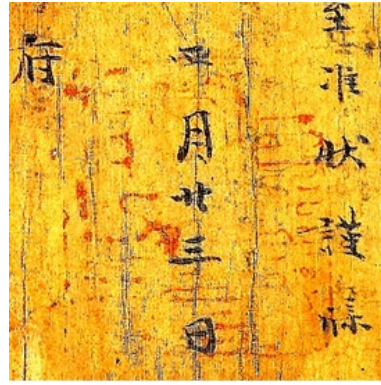 至准状謹牒
月廿三日
府